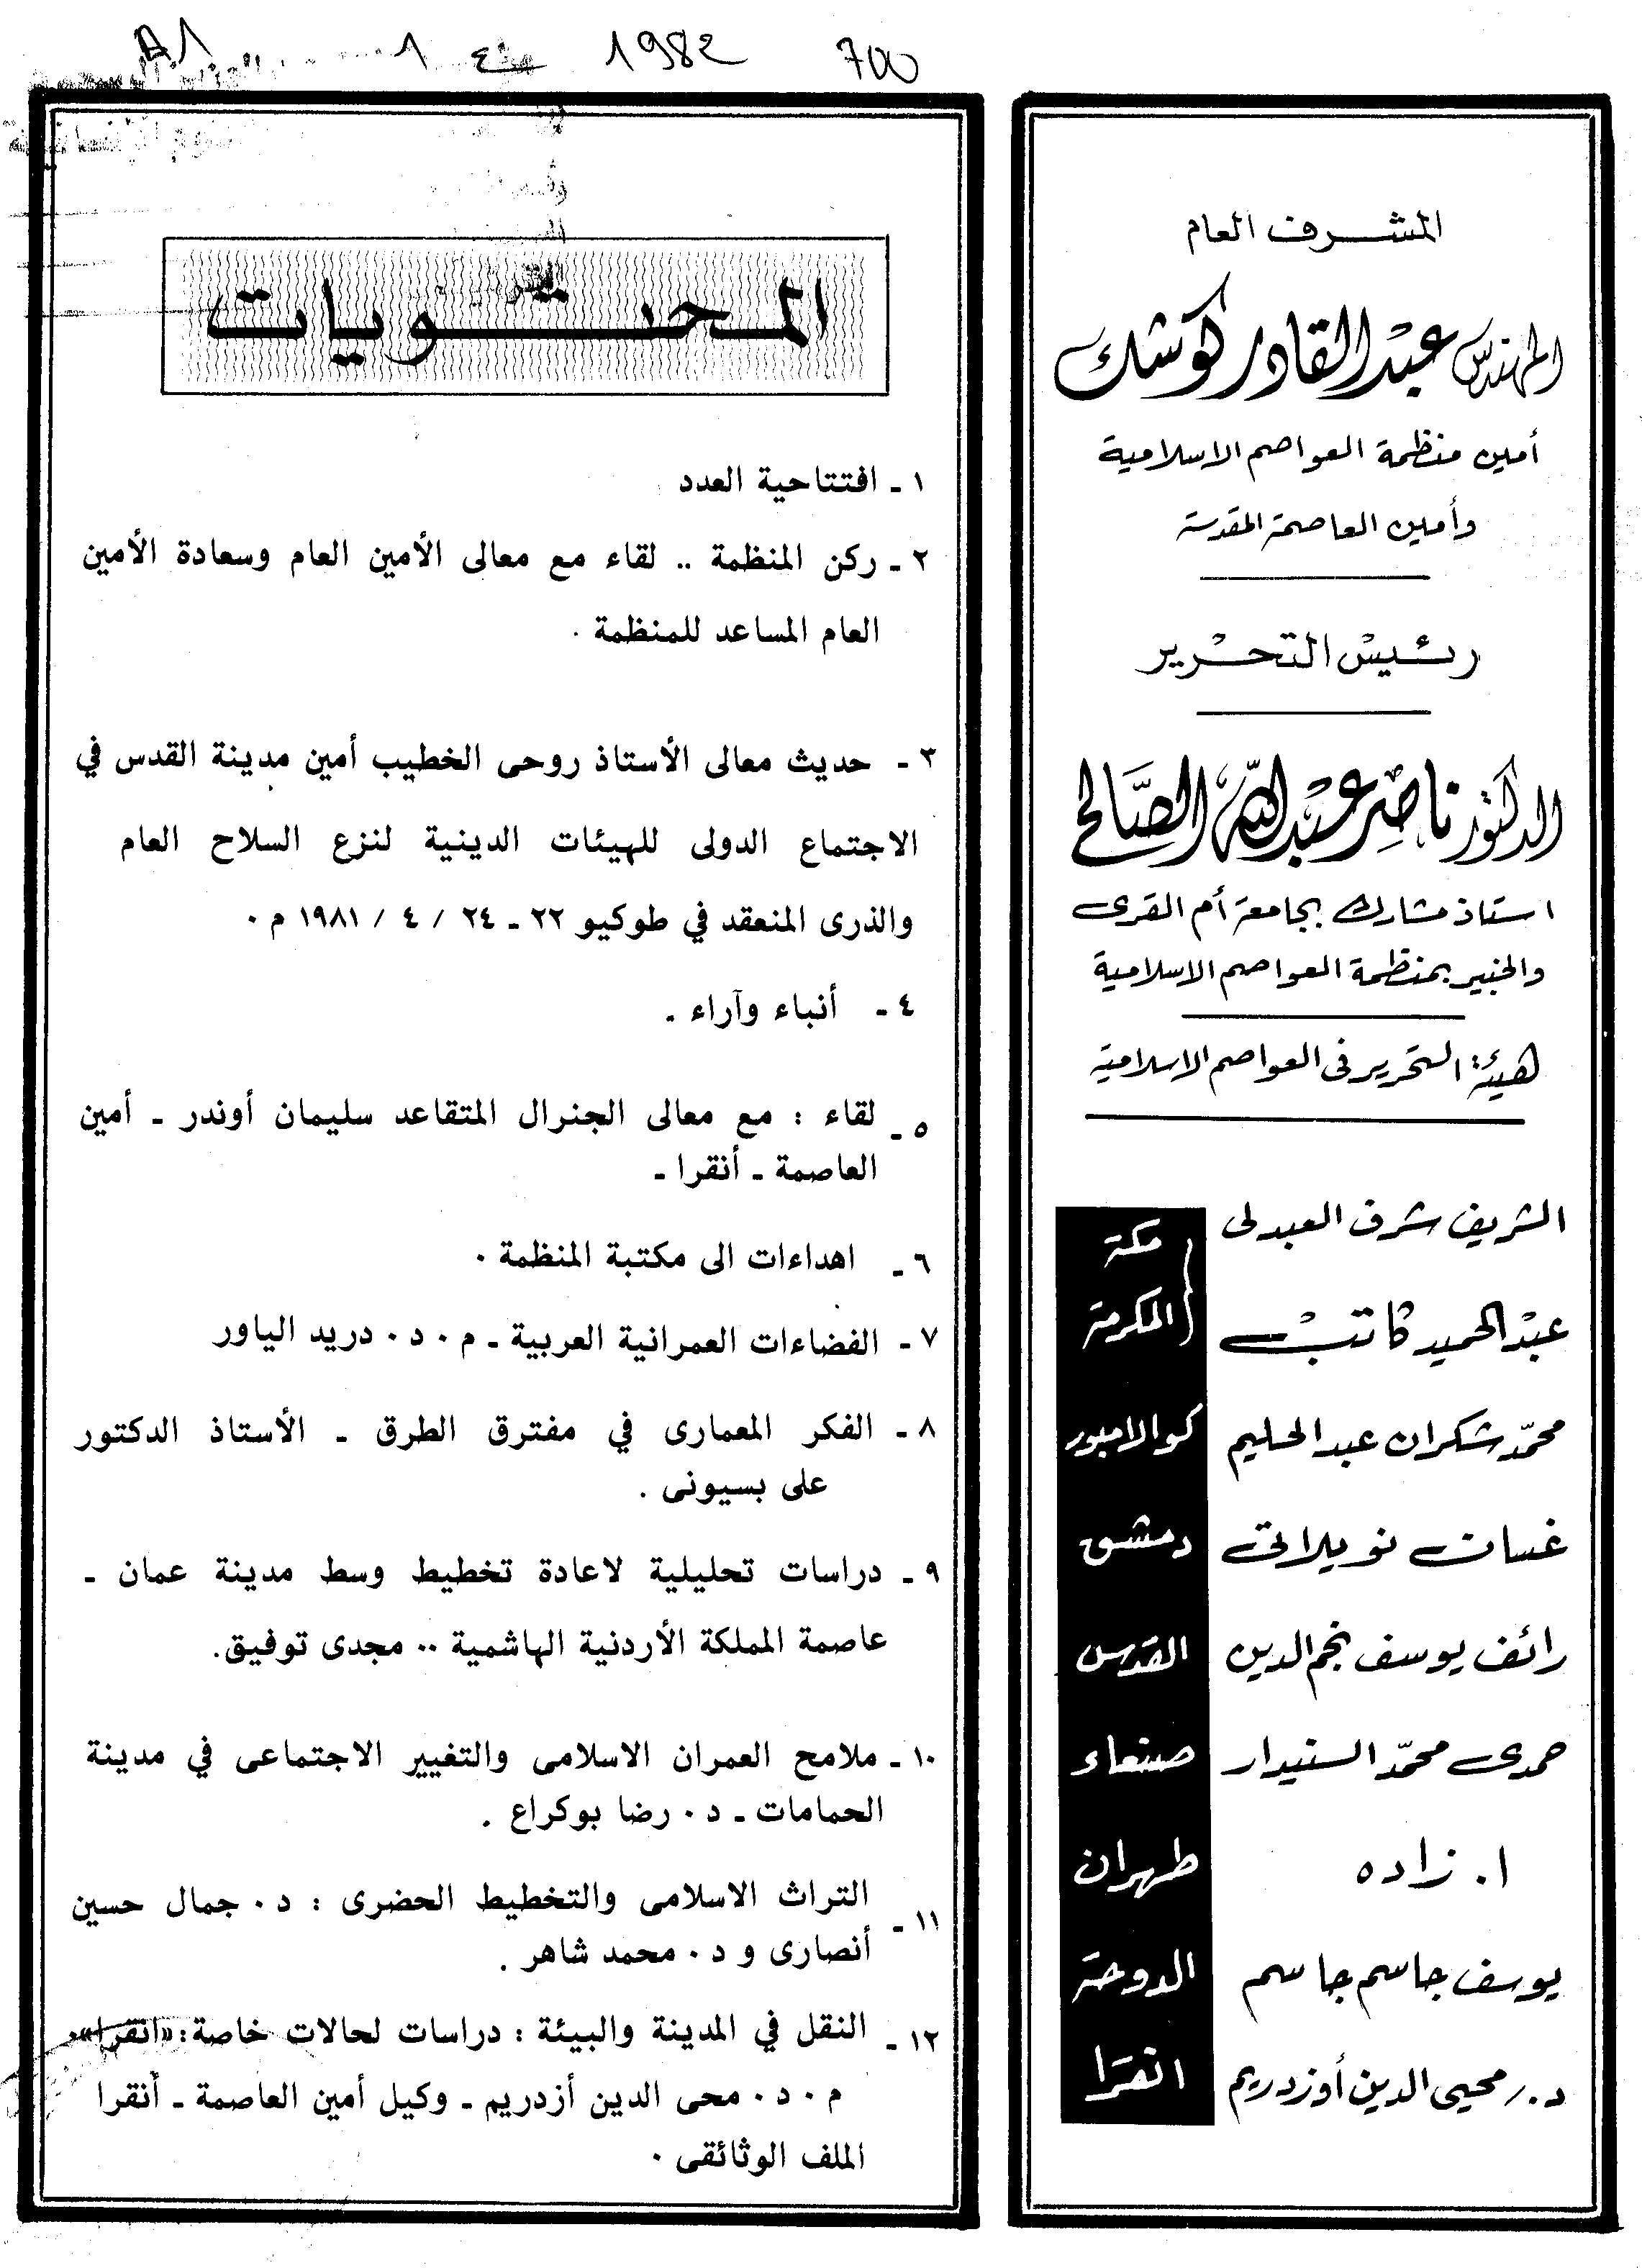 1982 700
المشرف العام
المهندس عبد القادر كوشك
أمين منظمة العواصم الاسلامية
وأمين العاصمة المقدسة
رئيس التحرير
الدكتور ناصر عبد الله الصالح
استاذ مشارك بجامعة أم القرى
والخبير بمنظمة العواصم الاسلامية
هيئة التحرير فى العواصم الاسلامية
الشريف شرف العبدلى مكة
عبد الحميد كاتب المكرمة
محمّد شكران عبد الحليم كوالالمبور
غسان نويلاتى دمشق
رائف يوسف نجم الدين القدس
حمدى محمّد السنيدار صنعاء
ا. زاده طهران
يوسف جاسم جاسم الدوحة
د. محيى الدين أوزدريم انقرا
المحتويات
١ - افتتاحية العدد
٢ - ركن المنظمة .. لقاء مع معالى الأمين العام وسعادة الأمين
العام المساعد للمنظمة .
٣ - حديث معالى الأستاذ روحى الخطيب أمين مدينة القدس في
الاجتماع الدولى للهيئات الدينية لنزع السلاح العام
والذرى المنعقد في طوكيو ٢٢ - ٢٤ / ٤ / ١٩٨١ م .
٤ - أنباء وآراء .
٥ - لقاء : مع معالى الجنرال المتقاعد سليمان أوندر - أمين
العاصمة - أنقرا -
٦ - اهداءات الى مكتبة المنظمة .
٧ - الفضاءات العمرانية العربية - م . د . دريد الياور
٨ - الفكر المعمارى في مفترق الطرق - الأستاذ الدكتور
على بسيونى .
٩ - دراسات تحليلية لاعادة تخطيط وسط مدينة عمان -
عاصمة المملكة الأردنية الهاشمية .. مجدى توفيق.
١٠ - ملامح العمران الاسلامى والتغيير الاجتماعى في مدينة
الحمامات - د . رضا بوكراع .
١١ - التراث الاسلامى والتخطيط الحضرى : د . جمال حسين
أنصارى و د . محمد شاهر .
١٢ - النقل في المدينة والبيئة : دراسات لحالات خاصة : «انقرا».
م . د . محى الدين أزدريم - وكيل أمين العاصمة - أنقرا
الملف الوثائقى .